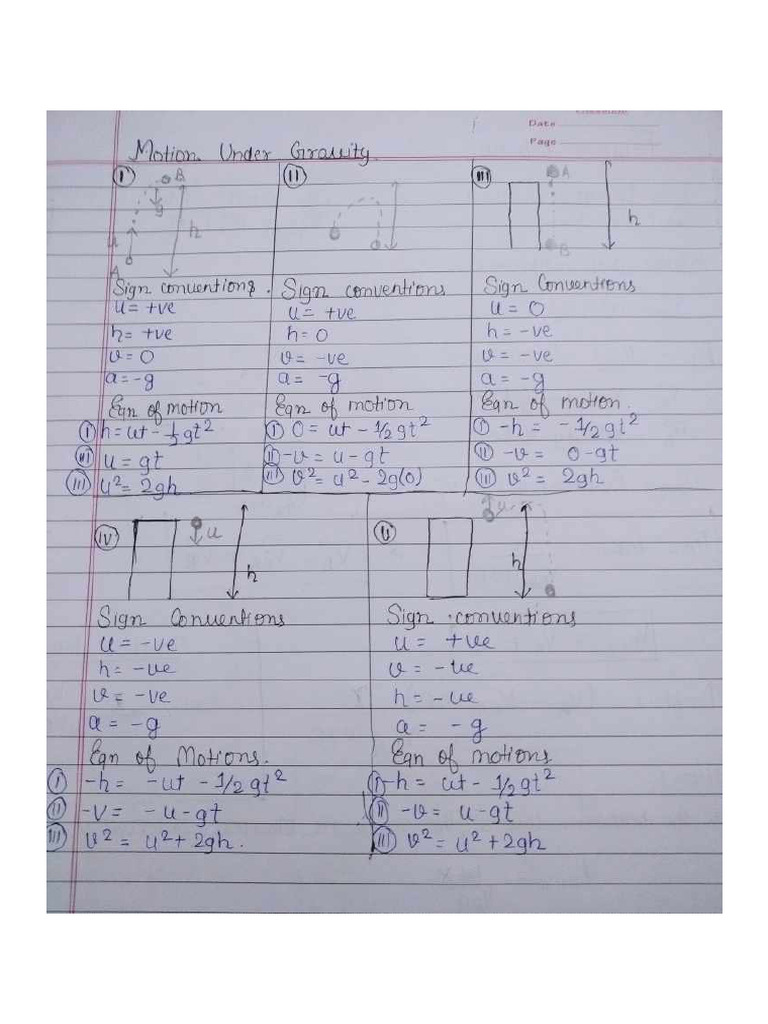 Date
Page
Motion Under Gravity.
I
B
g
h
u
A
Sign conventions.
u = +ve
h = +ve
v = 0
a = -g
Eqn of motion
I h = ut - 1/2 gt²
II u = gt
III u² = 2gh
II
Sign conventions
u = +ve
h = 0
v = -ve
a = -g
Eqn of motion
I 0 = ut - 1/2 gt²
II -v = u - gt
III v² = u² - 2g(0)
III
A
h
B
Sign Conventions
u = 0
h = -ve
v = -ve
a = -g
Eqn of motion.
I -h = - 1/2 gt²
II -v = 0 - gt
III v² = 2gh
IV
u
h
Sign Conventions
u = -ve
h = -ve
v = -ve
a = -g
Eqn of Motions.
I -h = -ut - 1/2 gt²
II -v = -u - gt
III v² = u² + 2gh.
V
u
h
Sign conventions
u = +ve
v = -ve
h = -ve
a = -g
Eqn of motions
I -h = ut - 1/2 gt²
II -v = u - gt
III v² = u² + 2gh